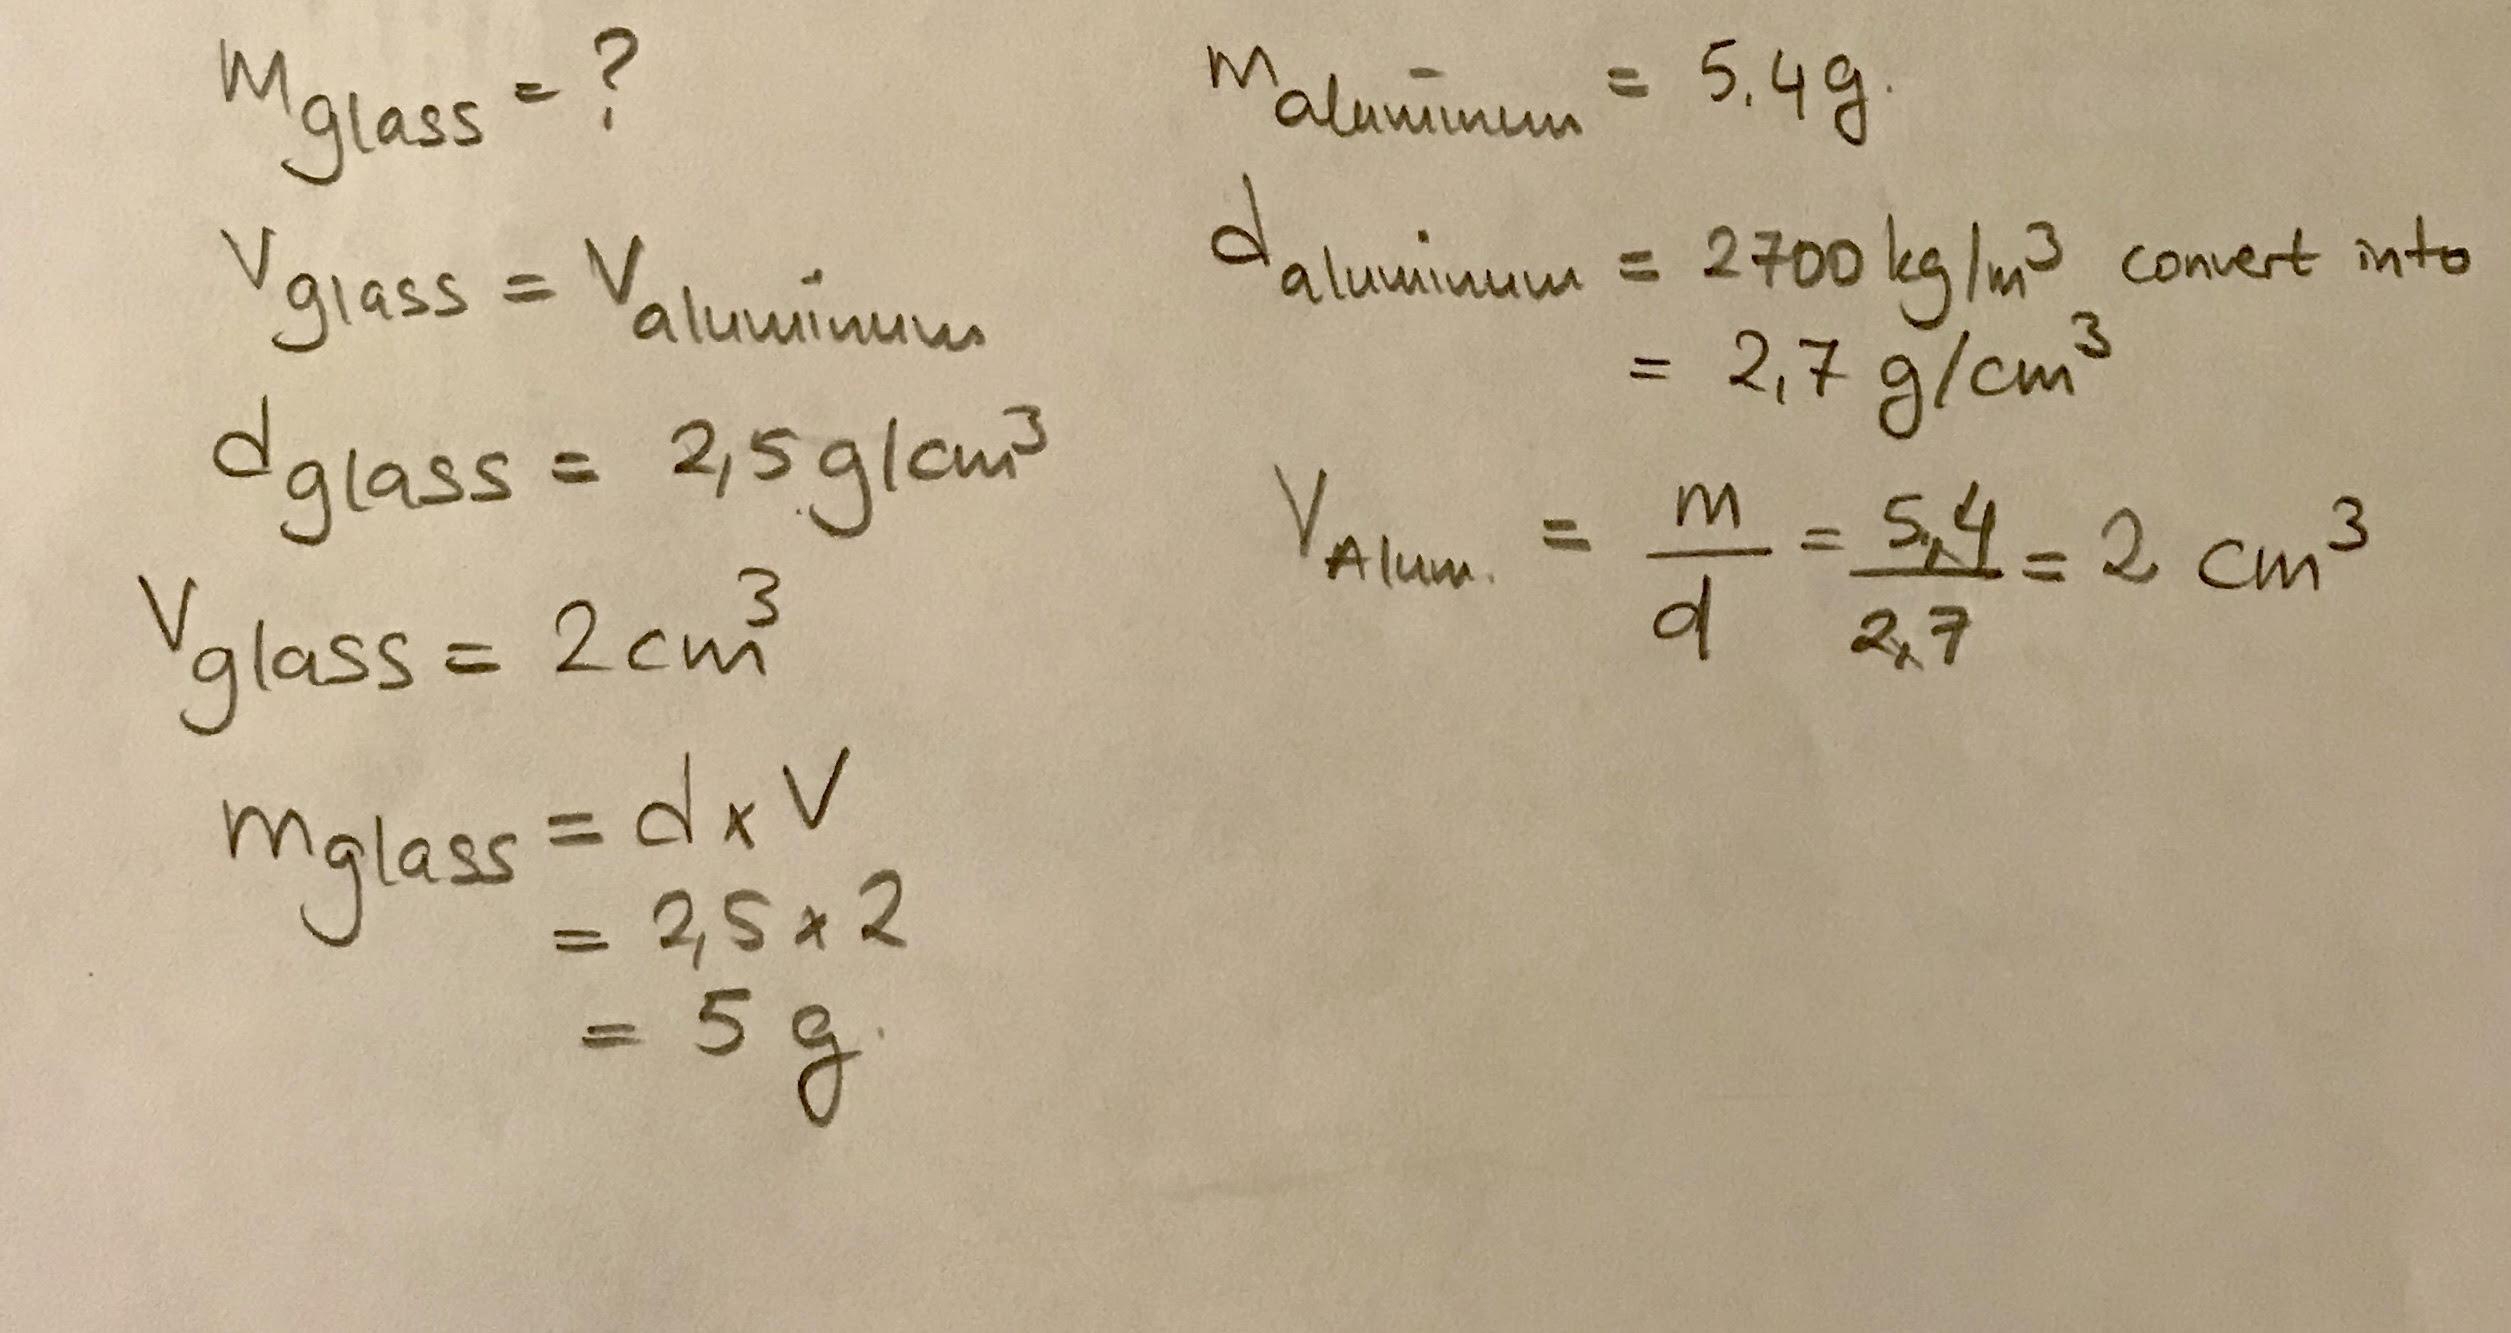 m glass = ?
V glass = V aluminum
d glass = 2,5 g/cm³
V glass = 2 cm³
m glass = d x V
= 2,5 x 2
= 5 g.
m aluminum = 5.4 g.
d aluminum = 2700 kg/m³ convert into
= 2,7 g/cm³
V Alum. = m/d = 5,4/2,7 = 2 cm³